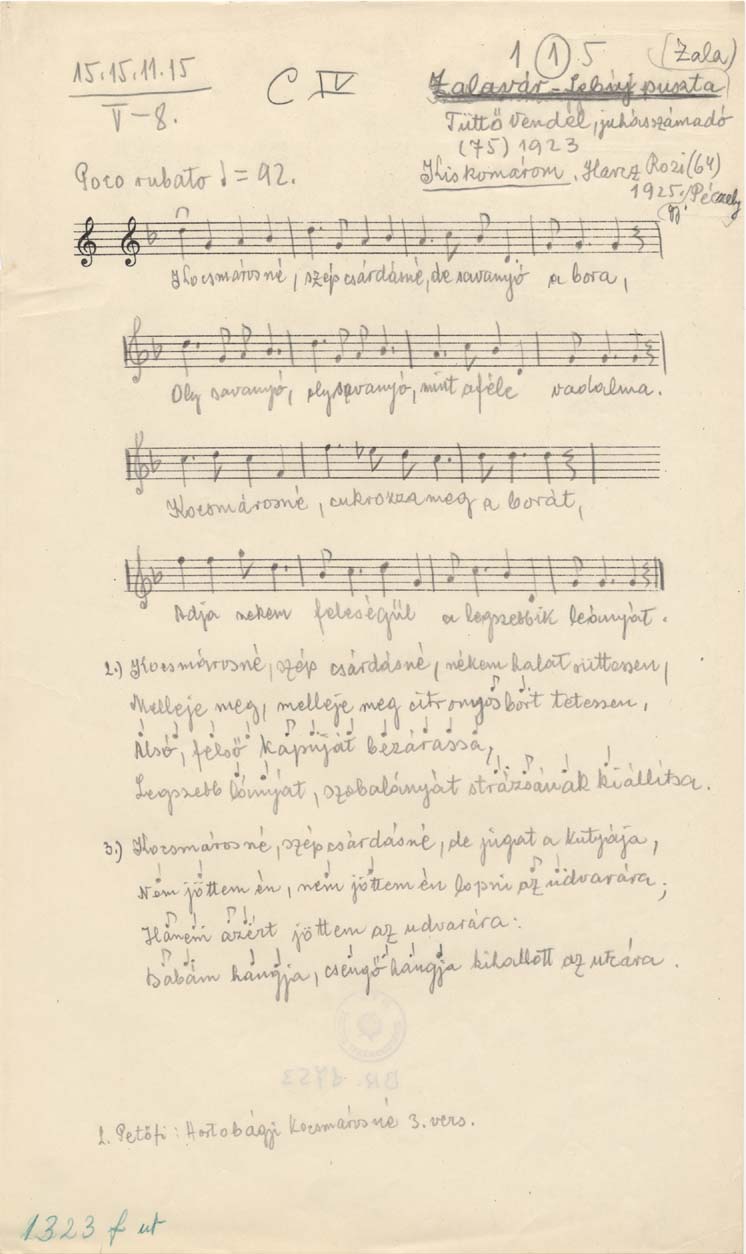 15.15.11.15
V-8.
C IV
1 1 5 (Zala)
Zalavár - puszta
Tüttő Vendél, juhászszámadó
(75) 1923
Kiskomárom, Harcz Rozi (64)
1925. Péczely
Poco rubato = 92.
Kocsmárosné, szép csárdásné, de savanyó a bora,
Oly savanyó, oly savanyó, mint aféle vadalma.
Kocsmárosné, cukrozza meg a borát,
Adja nekem feleségül a legszebbik leányát.
2.) Kocsmárosné, szép csárdásné, nékem halat süttessen,
Melleje meg, melleje meg citronyos bort tetessen,
Alsó, felső kapuját bézárassa,
Legszebb lányát, szobalányát strázsának kiállítsa.
3.) Kocsmárosné, szép csárdásné, de jugat a kutyája,
Nem jöttem én, nem jöttem én lopni az udvarára;
Hanem azért jöttem az udvarára:
Babám hangja, csengő hangja kihallott az utcára.
BR. 1723
L. Petőfi: Hortobágyi Kocsmárosné 3. vers.
1323 f ut